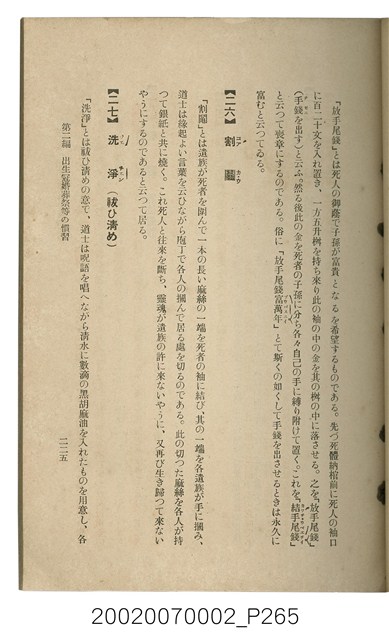 「放手尾錢」とは死人の御蔭で子孫が富貴となるを希望するものである。先づ死體納棺前に死人の袖口
に百二十文を入れ置き、一方五升桝を持ち來り此の袖の中の金を其の桝の中に落させる。之を「放手尾錢」
(手錢を出す)と云ふ。然る後此の金を死者の子孫に分ち各々自己の手に縛り附けて置く。これを「結手尾錢」
と云つて喪章にするのである。俗に「放手尾錢富萬年」とて斯くの如くして手錢を出させるときは永久に
富むと云つてゐる。
【二六】 割 鬮
「割鬮」とは遺族が死者を圍んで一本の長い麻絲の一端を死者の袖に結び、其の一端を各遺族が手に摑み、
道士は緣起よい言葉を云ひながら庖丁で各人の摑んで居る處を切るのである。此の切つた麻絲を各人が持
つて銀紙と共に燒く。これ死人と往來を斷ち、靈魂が遺族の許に來ないやうに、又再び生き歸つて來ない
やうにするのであると云つて居る。
【二七】 洗 淨 (祓ひ清め)
「洗淨」とは祓ひ清めの意で、道士は呪語を唱へながら清水に數滴の黑胡麻油を入れたものを用意し、各
第二編 出生冠婚葬祭等の慣習
二二五
20020070002_P265